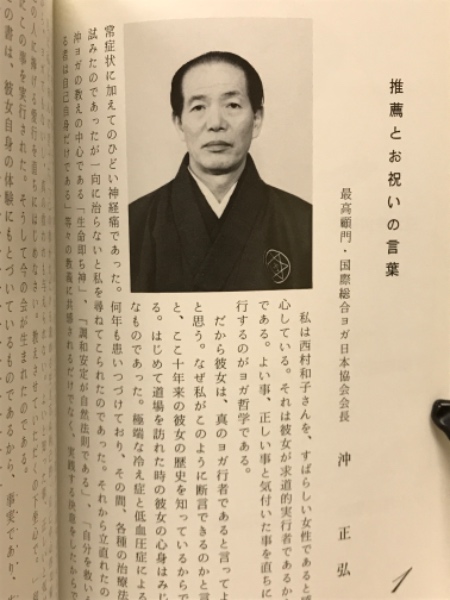 推薦とお祝いの言葉
最高顧門・国際総合ヨガ日本協会会長 沖 正弘
私は西村和子さんを、すばらしい女性であると
心している。それは彼女が求道的実行者であるか
である。よい事、正しい事と気付いた事を直ちに
行するのがヨガ哲学である。
だから彼女は、真のヨガ行者であると言ってよ
と思う。なぜ私がこのように断言できるのかと言
と、ここ十年来の彼女の歴史を知っているからで
る。はじめて道場を訪れた時の彼女の心身はみじ
なものであった。極端な冷え症と低血圧症による
常症状に加えてのひどい神経痛であった。何年も患いつづけており、その間、各種の治療法
試みたのであったが一向に治らないと私を尋ねてこられたのであった。それから立直れたの
沖ヨガの教えの中心である「生命即ち神」、「調和安定が自然法則である」、「自分を救いう
る者は自己自身だけである」等々の教義に共感されるだけでなく、実践する決意をしたからで
の人に捧げる愛行を直ちにはじめなさい。教えさせていただくの下坐心で
にこの事を実行された。そうして今の会が生まれたのである。
の書は、彼女自身の体験にもとづいているものであるから、事実であり、
1